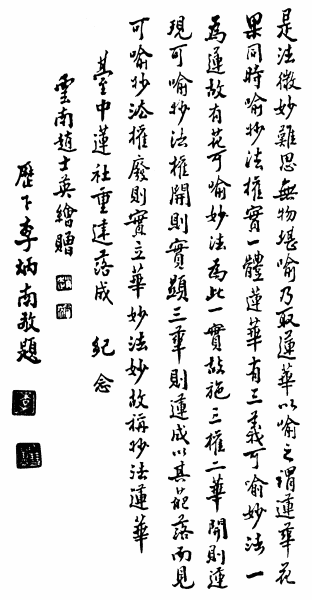 是法微妙難思無物堪喻乃取蓮華以喻之謂蓮華花
果同時喻妙法權實一體蓮華有三義可喻妙法一
為蓮故有花可喻妙法為此一實故施三權二華開則蓮
現可喻妙法權開則實顯三華則蓮成以其花落而見
可喻妙法權廢則實立華妙法妙故稱妙法蓮華
臺中蓮社重建落成 紀念
雲南趙士英繪贈
歷下李炳南敬題